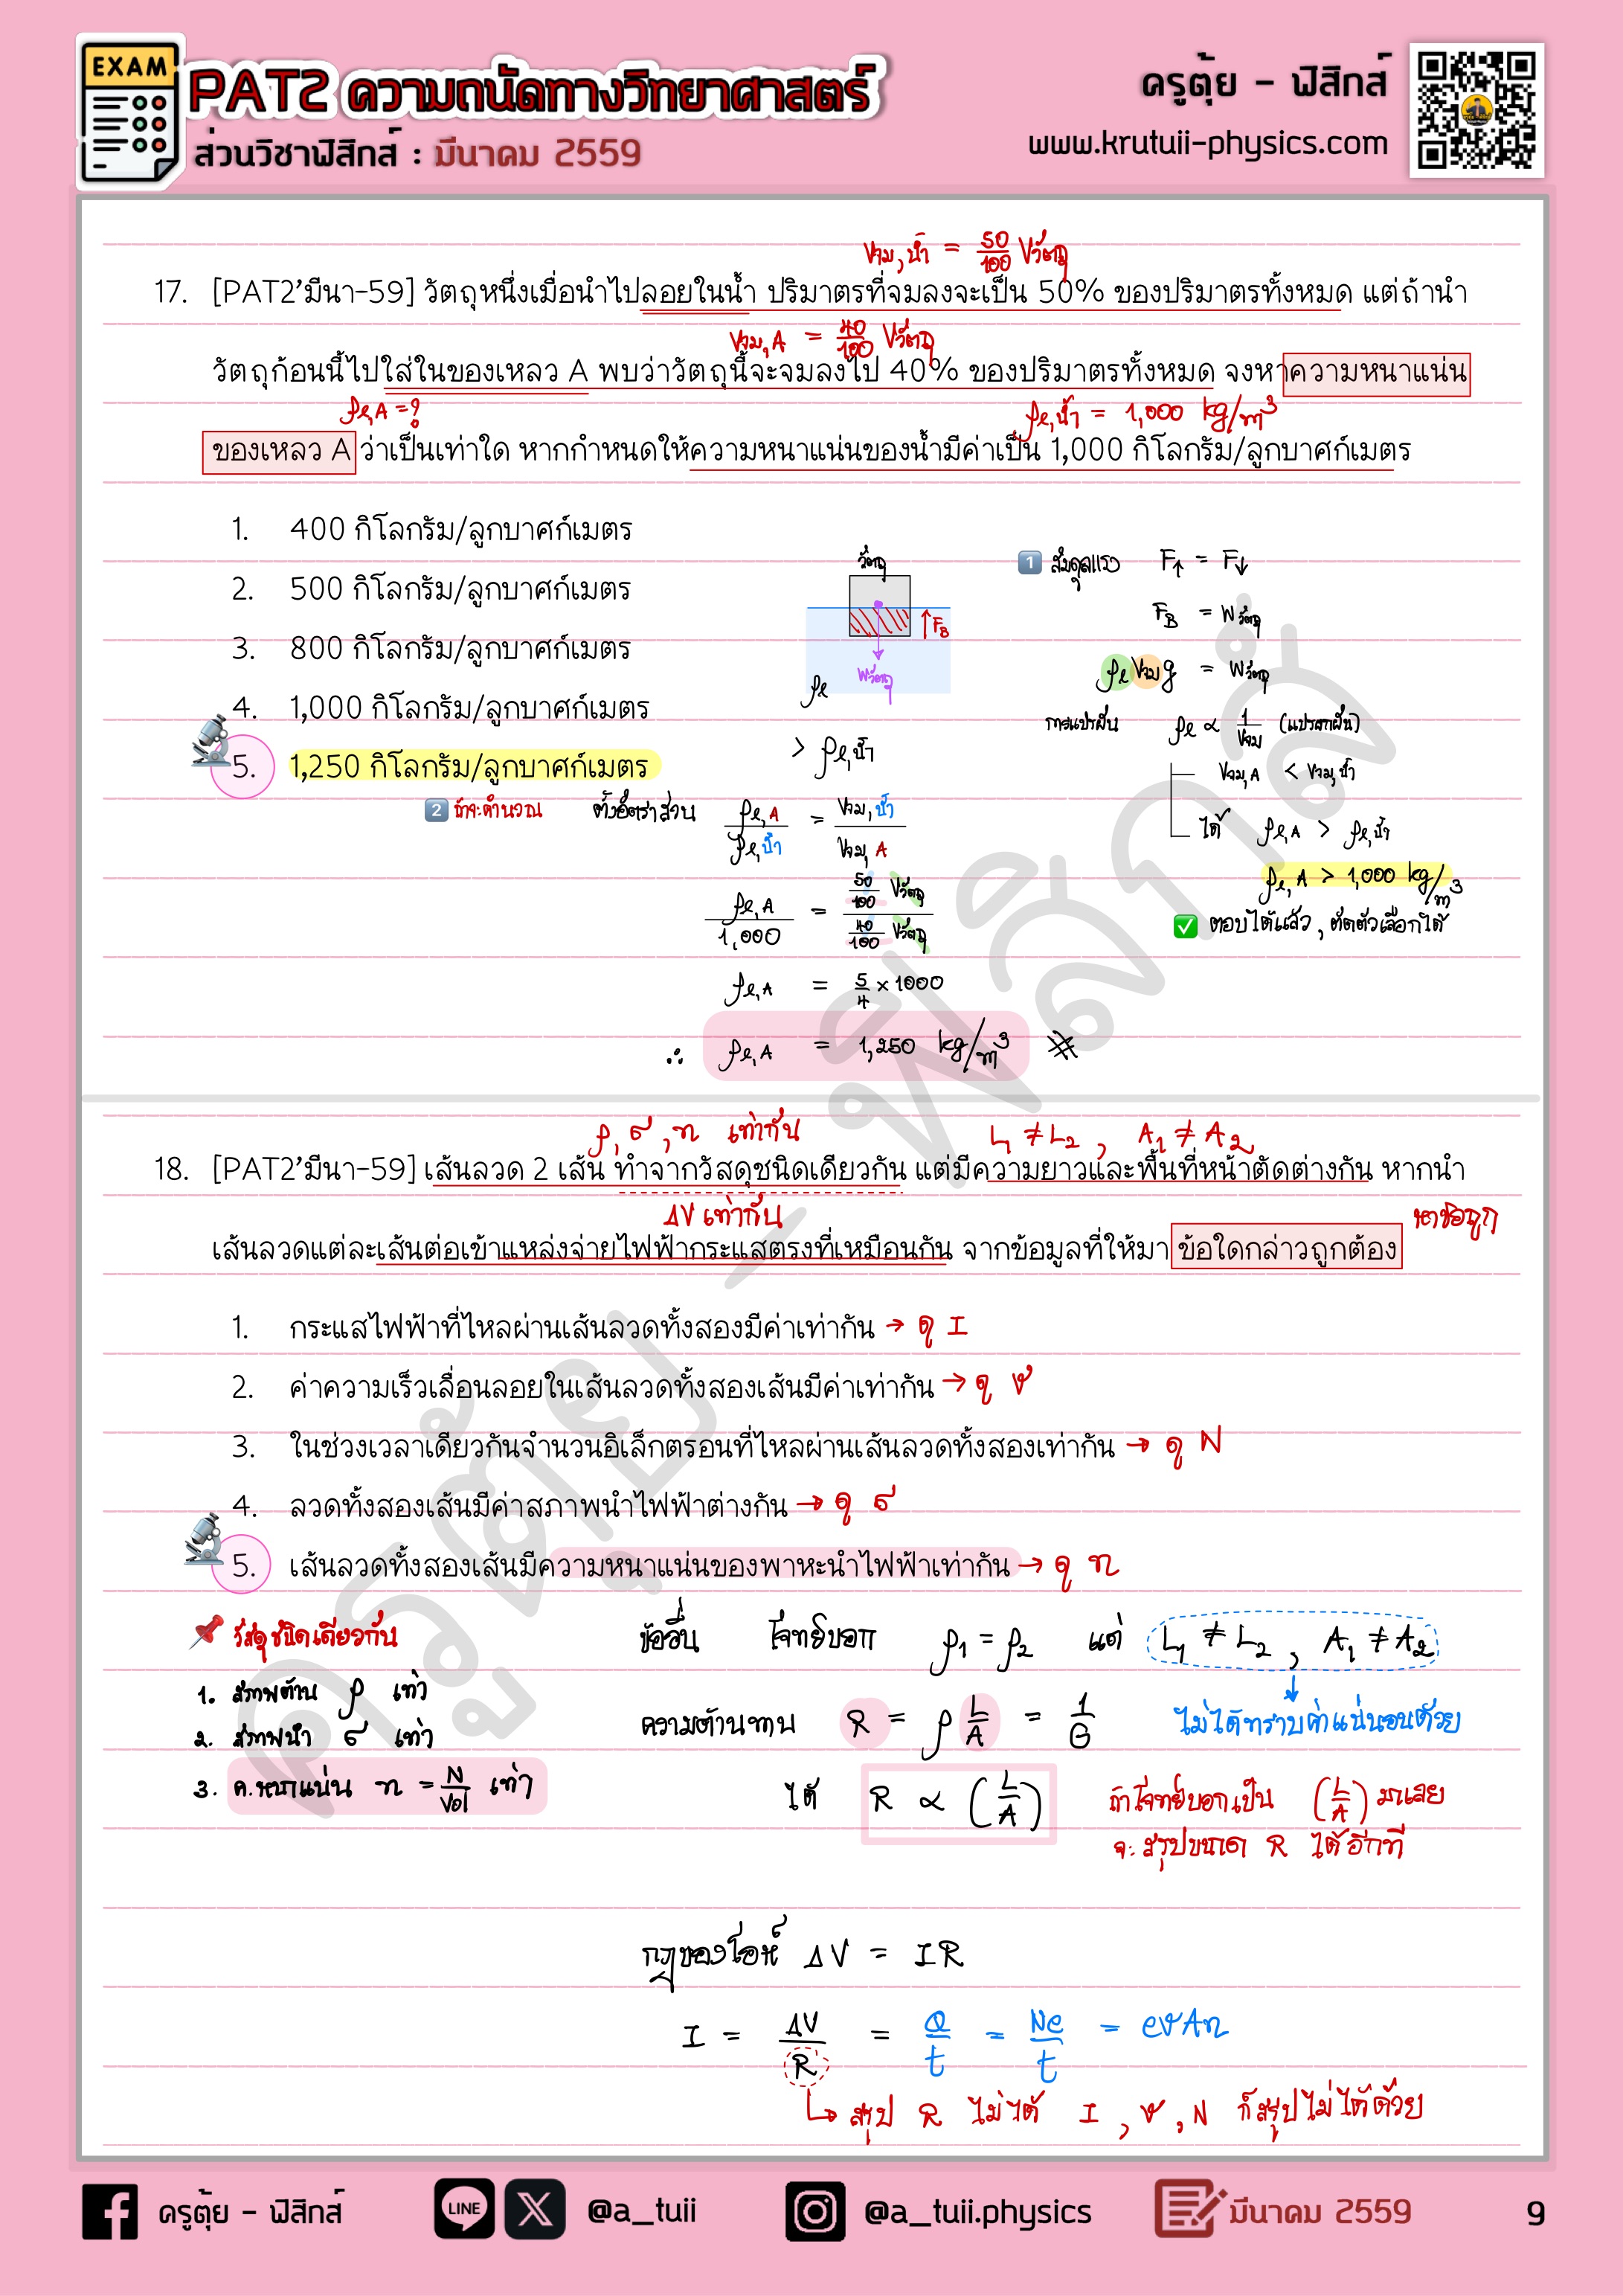 EXAM
PAT2 ความถนัดทางวิทยาศาสตร์
ส่วนวิชาฟิสิกส์ : มีนาคม 2559
ครูตุ้ย - ฟิสิกส์
www.krutuii-physics.com
Vจม,น้ำ = 50/100 Vวัตถุ
17. [PAT2’มีนา-59] วัตถุหนึ่งเมื่อนำไปลอยในน้ำ ปริมาตรที่จมลงจะเป็น 50% ของปริมาตรทั้งหมด แต่ถ้านำ
Vจม,A = 40/100 Vวัตถุ
วัตถุก้อนนี้ไปใส่ในของเหลว A พบว่าวัตถุนี้จะจมลงไป 40% ของปริมาตรทั้งหมด จงหาความหนาแน่น
ρℓ,A = ? ρℓ,น้ำ = 1,000 kg/m³
ของเหลว A ว่าเป็นเท่าใด หากกำหนดให้ความหนาแน่นของน้ำมีค่าเป็น 1,000 กิโลกรัม/ลูกบาศก์เมตร
1. 400 กิโลกรัม/ลูกบาศก์เมตร
2. 500 กิโลกรัม/ลูกบาศก์เมตร
3. 800 กิโลกรัม/ลูกบาศก์เมตร
4. 1,000 กิโลกรัม/ลูกบาศก์เมตร
5. 1,250 กิโลกรัม/ลูกบาศก์เมตร
> ρℓ,น้ำ
วัตถุ
FB
Wวัตถุ
ρℓ
1 สมดุลแรง F↑ = F↓
FB = Wวัตถุ
ρℓVจมg = Wวัตถุ
การแปรผัน ρℓ ∝ 1/Vจม (แปรผกผัน)
Vจม,A < Vจม,น้ำ
ได้ ρℓ,A > ρℓ,น้ำ
ρℓ,A > 1,000 kg/m³
✅ ตอบได้แล้ว, ตัดตัวเลือกได้
2 ถ้าจะคำนวณ ตั้งอัตราส่วน ρℓ,A/ρℓ,น้ำ = Vจม,น้ำ/Vจม,A
ρℓ,A/1,000 = 50/100 Vวัตถุ / 40/100 Vวัตถุ
ρℓ,A = 5/4 × 1000
∴ ρℓ,A = 1,250 kg/m³ #
ρ, σ, n เท่ากัน L₁ ≠ L₂ , A₁ ≠ A₂
18. [PAT2’มีนา-59] เส้นลวด 2 เส้น ทำจากวัสดุชนิดเดียวกัน แต่มีความยาวและพื้นที่หน้าตัดต่างกัน หากนำ
ΔV เท่ากัน หาข้อถูก
เส้นลวดแต่ละเส้นต่อเข้าแหล่งจ่ายไฟฟ้ากระแสตรงที่เหมือนกัน จากข้อมูลที่ให้มา ข้อใดกล่าวถูกต้อง
1. กระแสไฟฟ้าที่ไหลผ่านเส้นลวดทั้งสองมีค่าเท่ากัน → ดู I
2. ค่าความเร็วเลื่อนลอยในเส้นลวดทั้งสองเส้นมีค่าเท่ากัน → ดู v
3. ในช่วงเวลาเดียวกันจำนวนอิเล็กตรอนที่ไหลผ่านเส้นลวดทั้งสองเท่ากัน → ดู N
4. ลวดทั้งสองเส้นมีค่าสภาพนำไฟฟ้าต่างกัน → ดู σ
5. เส้นลวดทั้งสองเส้นมีความหนาแน่นของพาหะนำไฟฟ้าเท่ากัน → ดู n
📌 วัสดุชนิดเดียวกัน
1. สภาพต้าน ρ เท่า
2. สภาพนำ σ เท่า
3. ค.หนาแน่น n = N/Vol เท่า
ข้ออื่น โจทย์บอก ρ₁ = ρ₂ แต่ L₁ ≠ L₂ , A₁ ≠ A₂
ความต้านทาน R = ρ L/A = 1/G ไม่ได้ทราบค่าแน่นอนด้วย
ได้ R ∝ (L/A) ถ้าโจทย์บอกเป็น (L/A) มาเลย
จะสรุปขนาด R ได้อีกที
กฎของโอห์ม ΔV = IR
I = ΔV/R = Q/t = Ne/t = evAn
สรุป R ไม่ได้ I , v , N ก็สรุปไม่ได้ด้วย
ครูตุ้ย - ฟิสิกส์
ครูตุ้ย - ฟิสิกส์
LINE
@a_tuii
@a_tuii.physics
มีนาคม 2559
9